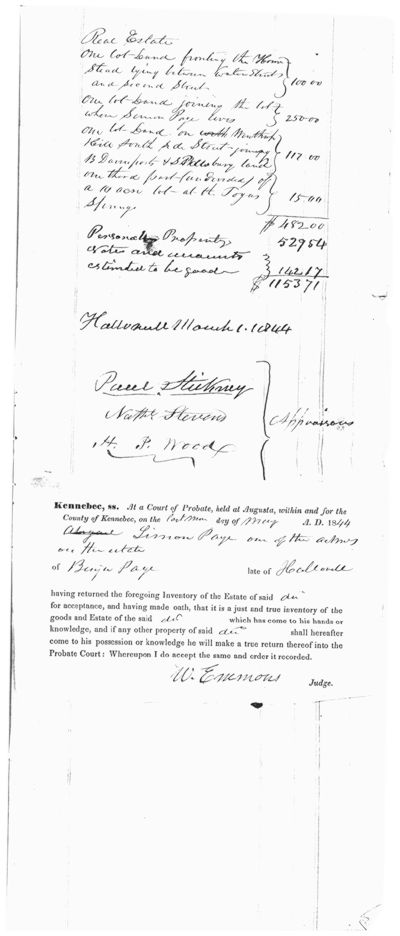 Real Estate
One lot Land fronting the Home
Stead lying between Water Street
and Second Street 100 00
One lot Land joining the lot
where Simon Page lives 250 00
One lot Land on Winthrop
Hill South side Street joining
B Davenports & S Pillsbury land 117 00
one third part (undivided) of
a 10 acre lot at the Togus
Springs 15.00
$ 482.00
Personal Property 529 54
Notes and accounts
estimated to be good 142 17
$ 1153 71
Hallowell March 1. 1844
Paul Stickney
Nathl Stevens
H. P. Wood
Appraisers
Kennebec, ss. At a Court of Probate, held at Augusta, within and for the
County of Kennebec, on the last Mon day of May A. D. 1844
Simon Page one of the admrs
on the estate
of Benjn Page late of Hallowell
having returned the foregoing Inventory of the Estate of said decd
for acceptance, and having made oath, that it is a just and true inventory of the
goods and Estate of the said decd which has come to his hands or
knowledge, and if any other property of said decd shall hereafter
come to his possession or knowledge he will make a true return thereof into the
Probate Court: Whereupon I do accept the same and order it recorded.
W. Emmons Judge.